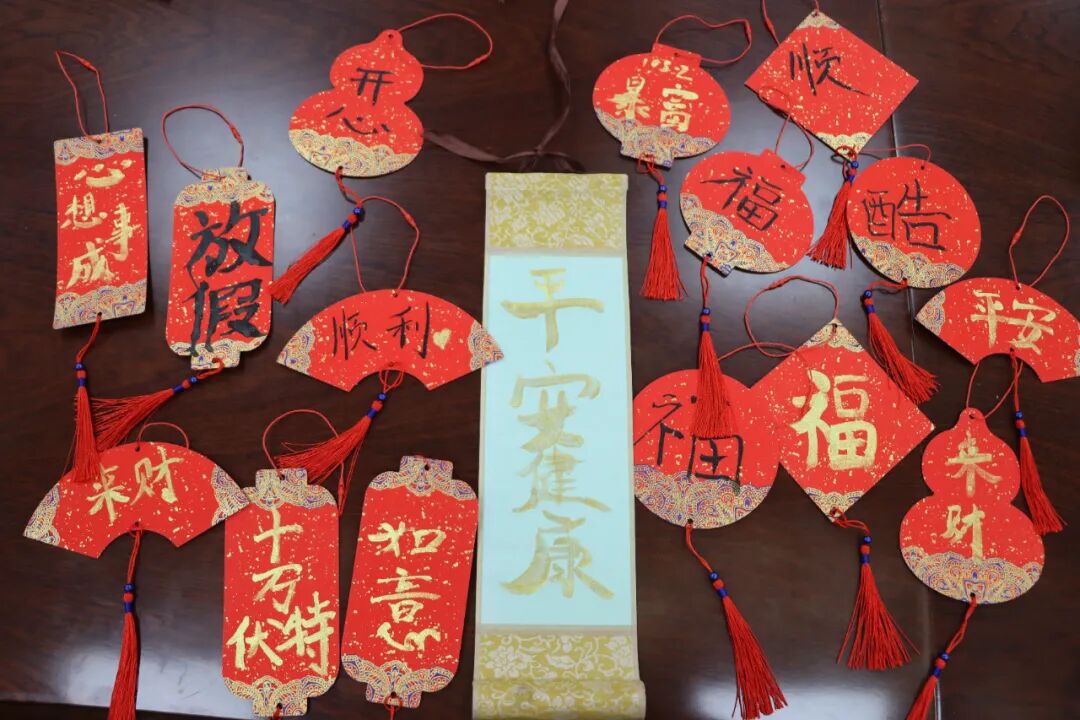 心想事成
放假
开心
顺利
来财
十万
伏特
如意
平安健康
暴富
顺
福
酷
平安
福
福
来财